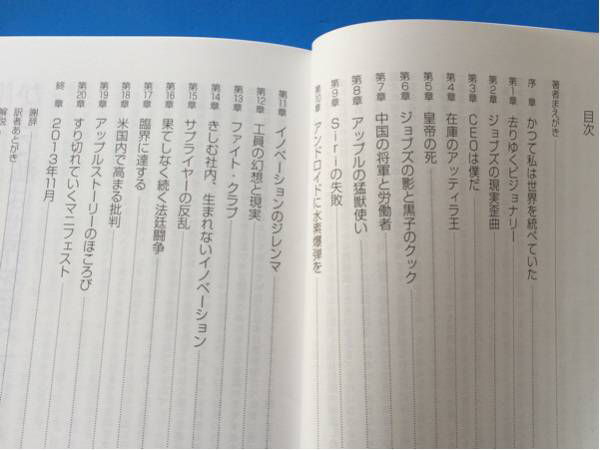 目次
著者まえがき
序　章　かつて私は世界を統べていた
第1章　去りゆくビジョナリー
第2章　ジョブズの現実歪曲
第3章　CEOは僕だ
第4章　在庫のアッティラ王
第5章　皇帝の死
第6章　ジョブズの影と黒子のクック
第7章　中国の将軍と労働者
第8章　アップルの猛獣使い
第9章　Siriの失敗
第10章　アンドロイドに水素爆弾を
第11章　イノベーションのジレンマ
第12章　工員の幻想と現実
第13章　ファイト・クラブ
第14章　きしむ社内、生まれないイノベーション
第15章　サプライヤーの反乱
第16章　果てしなく続く法廷闘争
第17章　臨界に達する
第18章　米国内で高まる批判
第19章　アップルストーリーのほころび
第20章　すり切れていくマニフェスト
終　章　2013年11月
謝辞
訳者あとがき
解説